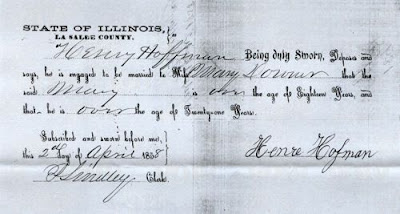 STATE OF ILLINOIS,
LA SALLE COUNTY.
Henry Hoffman Being duly Sworn, Deposes and
says, he is engaged to be married to Miss Mary that the
said Mary is over the age of Eighteen Years, and
that he is over the age of Twenty-one Years.
Subscribed and sworn before me,
this 2nd day of April 1858
Henre Hofman
Clerk.